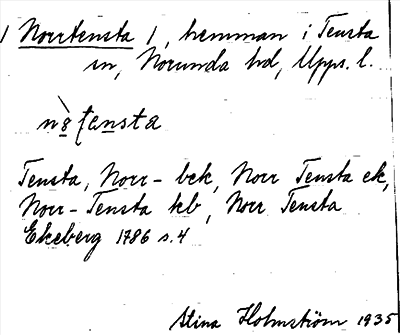 / Norrtensta /, hemman i Tensta
sn, Norunda hd, Upps. l.
Tensta, Norr- bek, Norr Tensta ek,
Norr-Tensta tkb, Norr Tensta
Ekeberg 1786 s. 4
Stina Holmström 1935